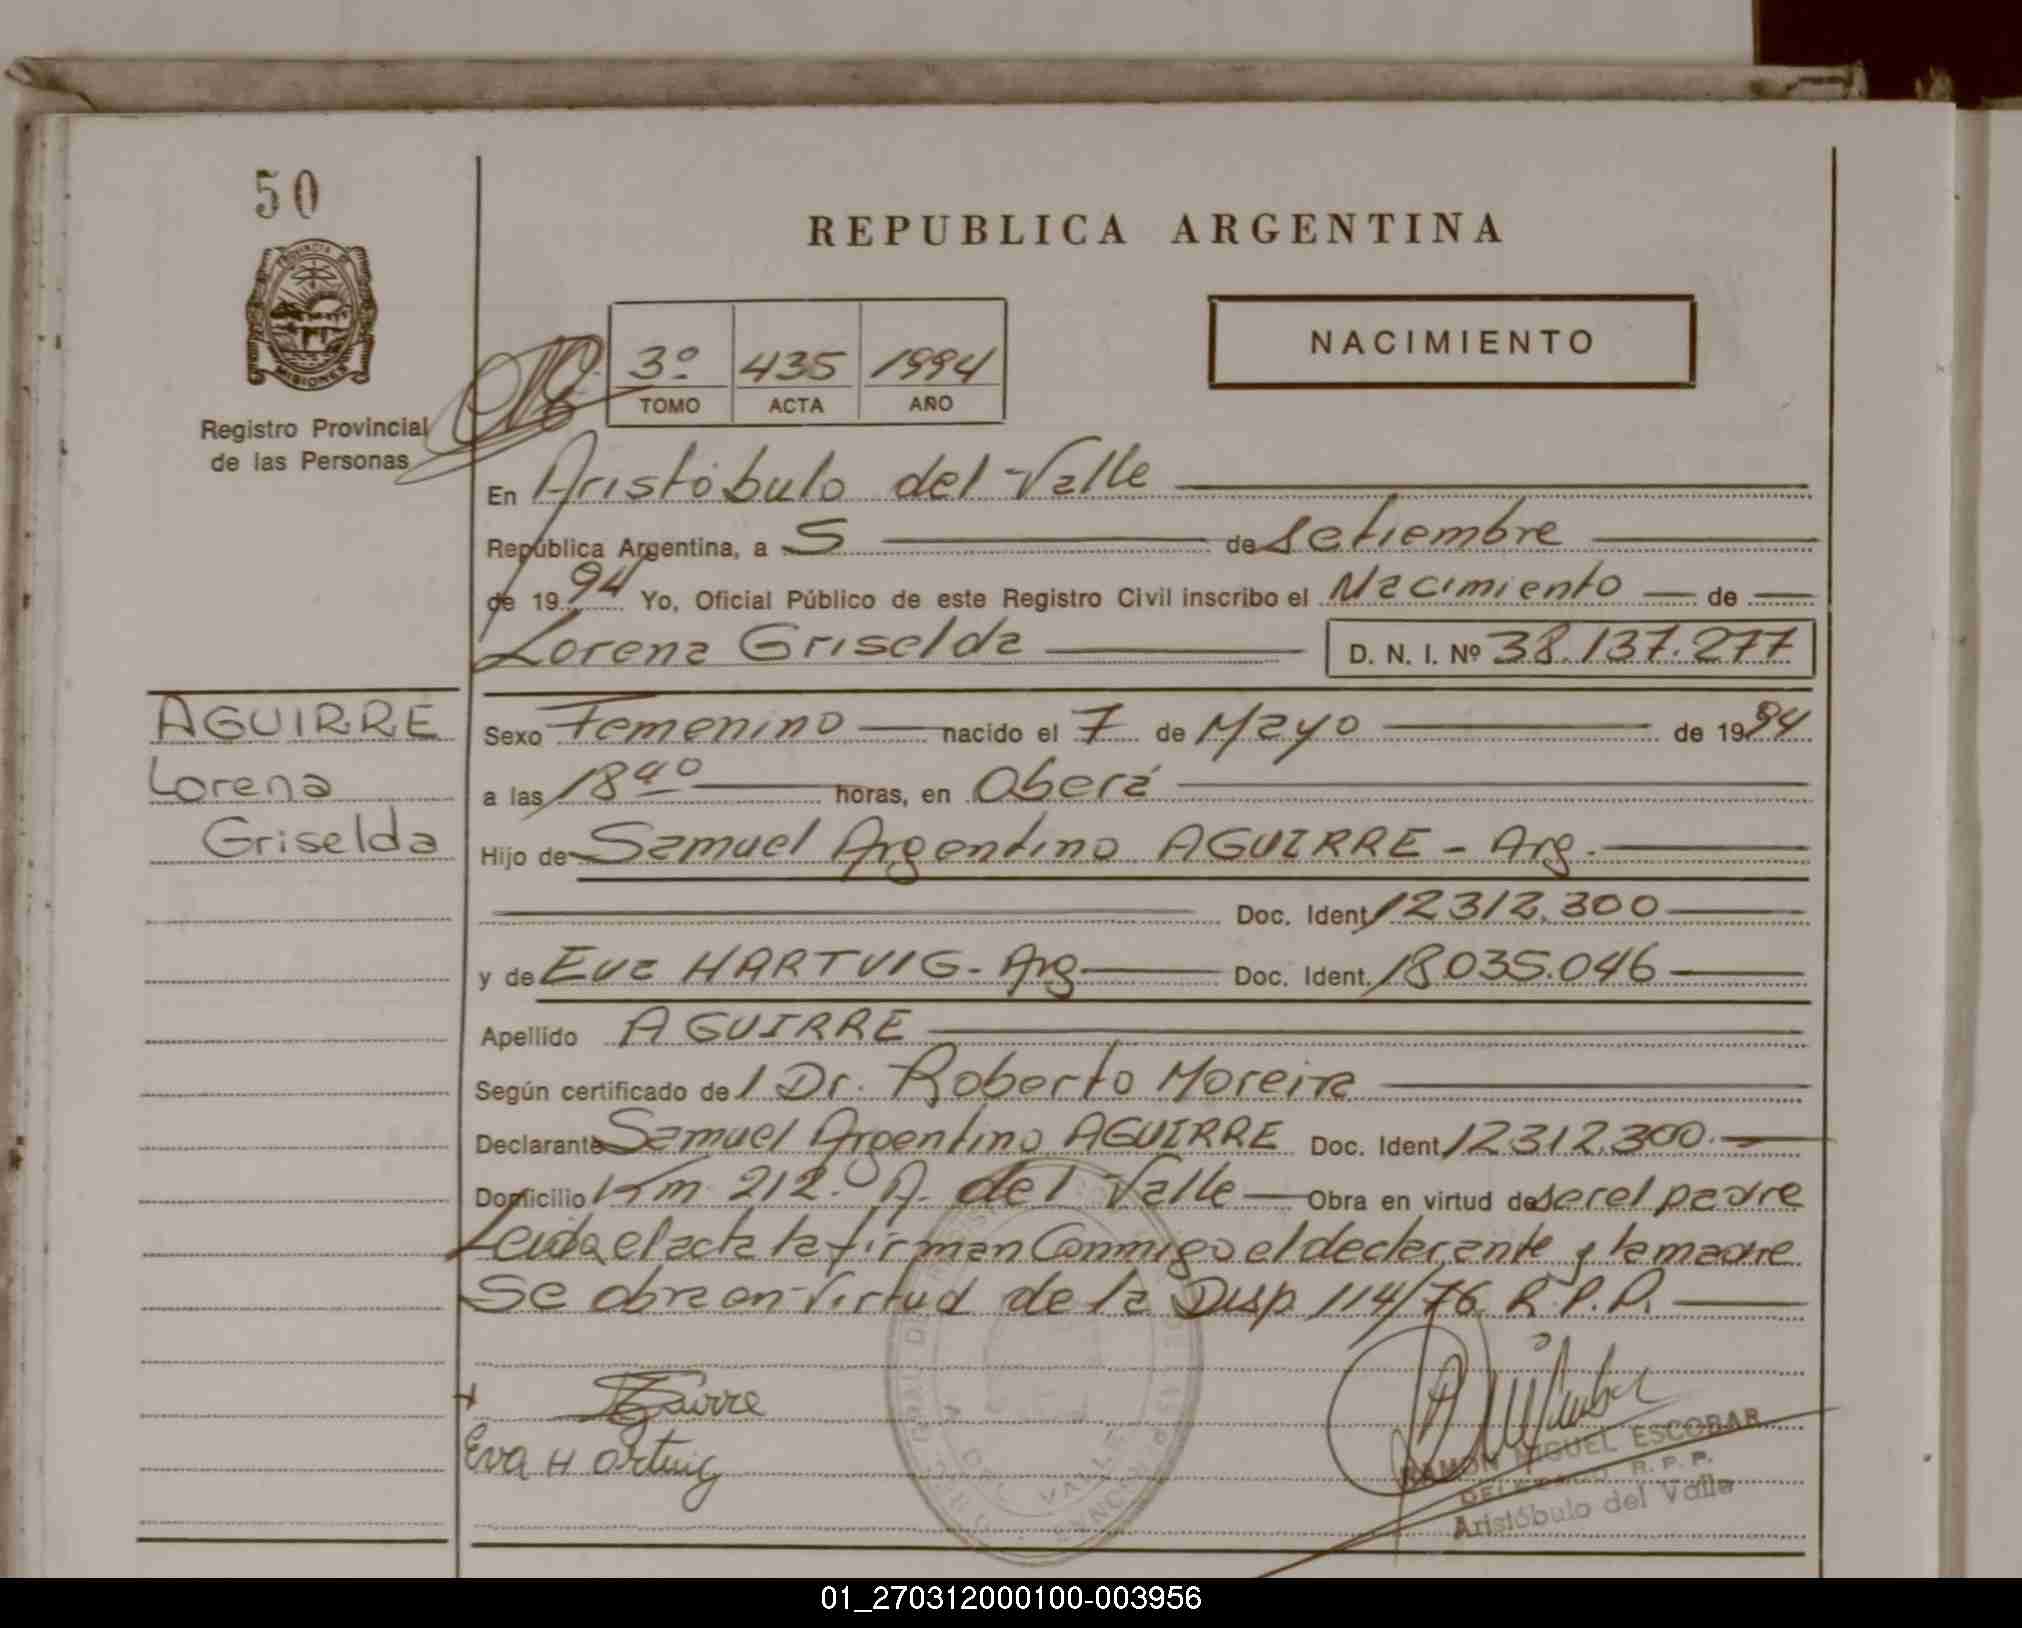 50
REPUBLICA ARGENTINA
PROVINCIA DE
MISIONES
Registro Provincial
de las Personas
3º 435 1994
TOMO ACTA AÑO
NACIMIENTO
En Aristóbulo del Valle
República Argentina, a 5 de setiembre
de 1994 Yo, Oficial Público de este Registro Civil inscribo el Nacimiento de
Lorena Griselda D. N. I. Nº 38.137.277
AGUIRRE
Lorena
Griselda
Sexo Femenino nacido el 7 de Mayo de 1994
a las 18 40 horas, en Oberá
Hijo de Samuel Argentino AGUIRRE - Arg.
Doc. Ident. 12312.300
y de Eva HARTVIG - Arg Doc. Ident. 18.035.046
Apellido AGUIRRE
Según certificado de l Dr. Roberto Moreira
Declarante Samuel Argentino AGUIRRE Doc. Ident. 12312.300.
Domicilio Km 212. A. del Valle Obra en virtud de ser el padre
Leida el acta la firman Conmigo el declarante y la madre
Se obra en virtud de la Disp 114/76 R.P.P.
Eva Hartvig
RAMON MIGUEL ESCOBAR
DELEGADO R. P. P.
Aristóbulo del Valle
DEL VALLE
01_270312000100-003956